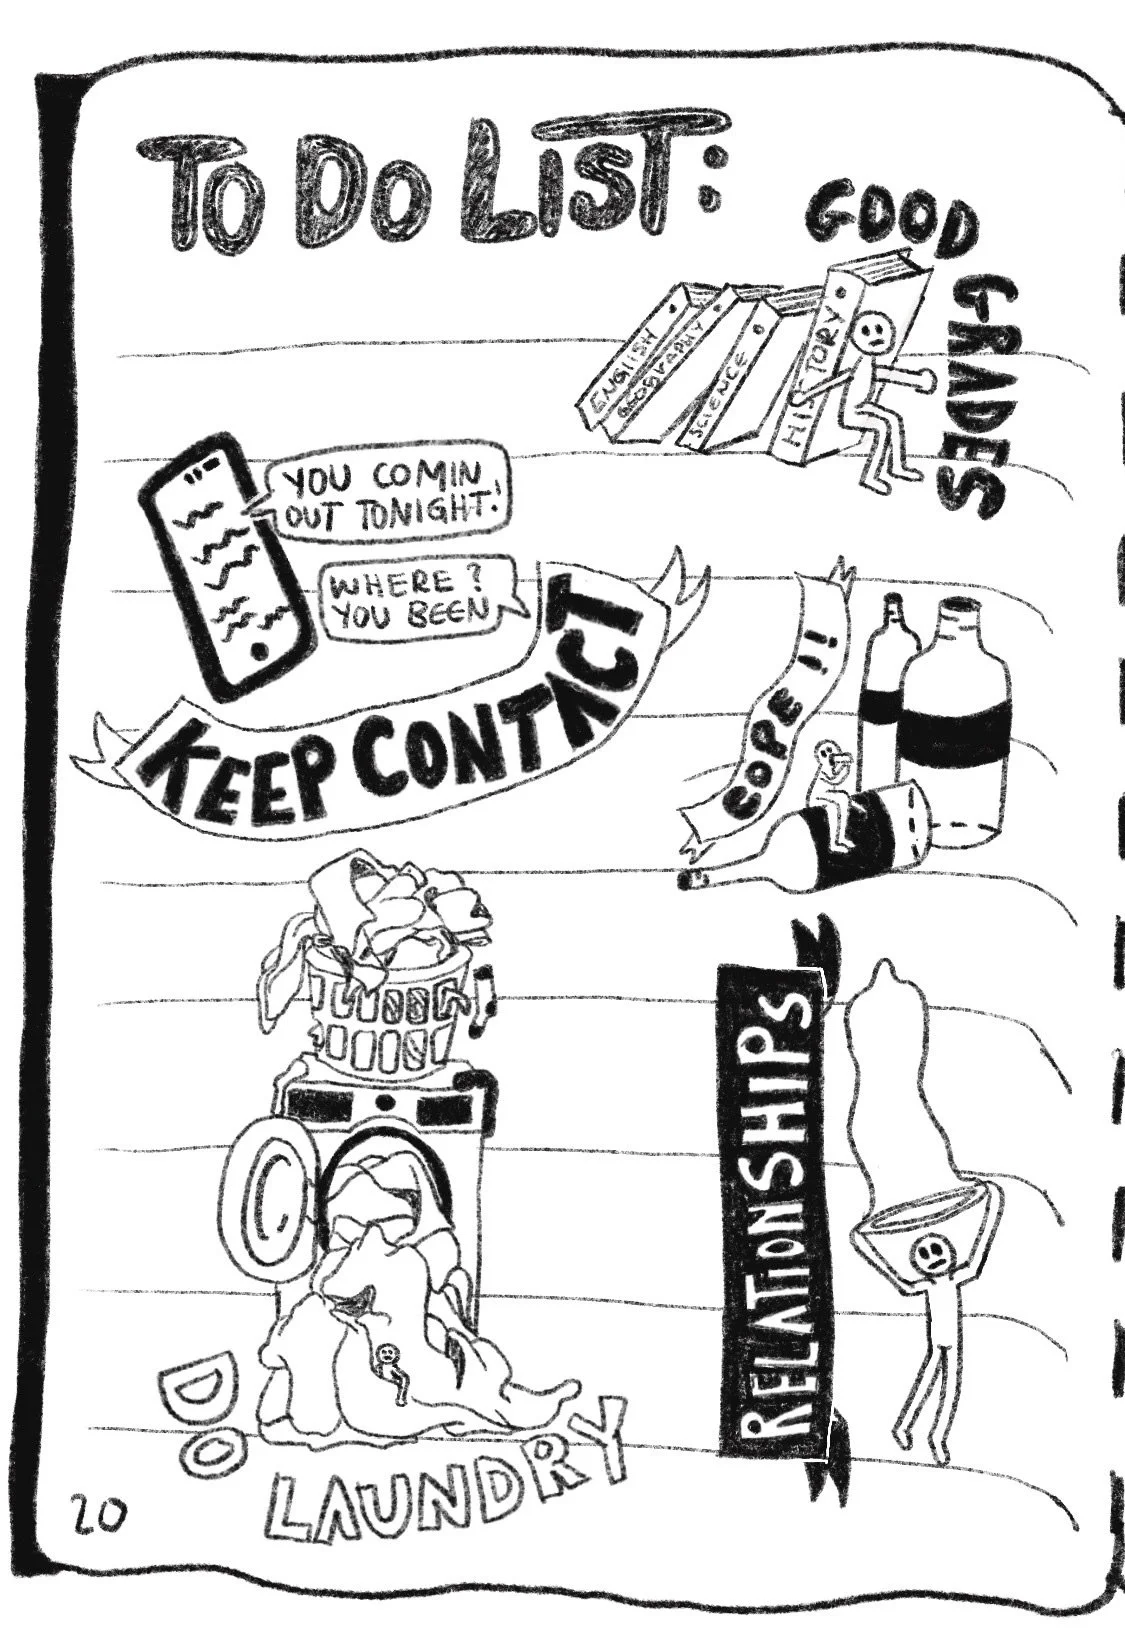 TO DO LIST:
GOOD
GRADES
ENGLISH
GEOGRAPHY
SCIENCE
HISTORY
YOU COMIN
OUT TONIGHT!
WHERE?
YOU BEEN
KEEP CONTACT
COPE!!
RELATIONSHIPS
DO
LAUNDRY
20